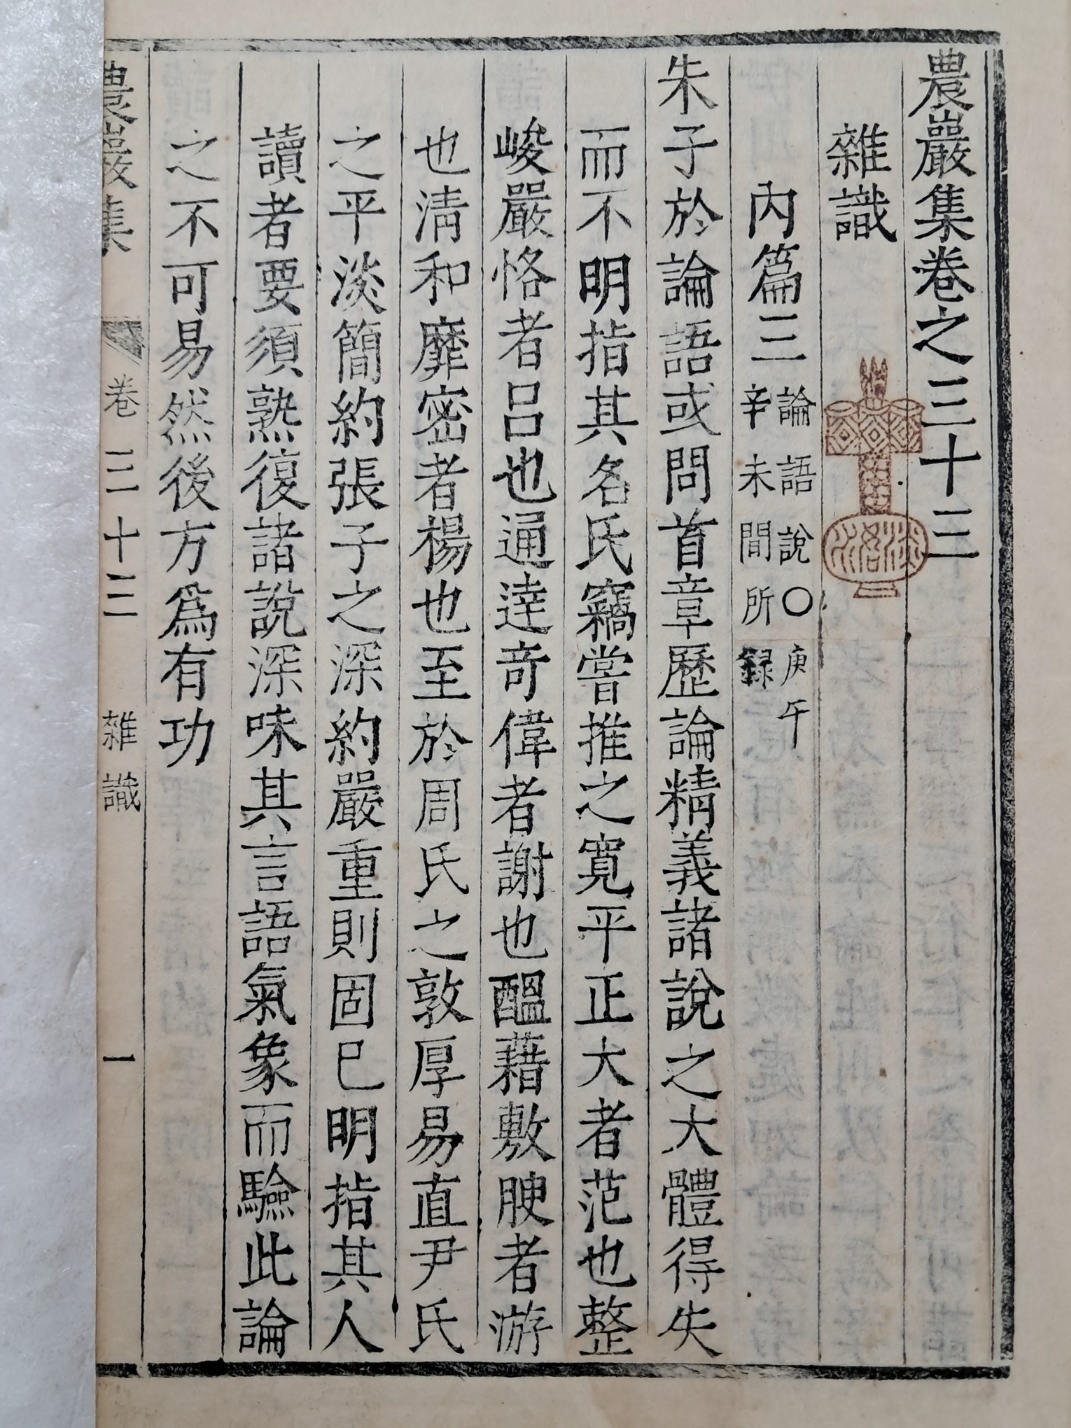 農巖集卷之三十三
雜識
內篇三 論語說〇庚午
辛未間所録
朱子於論語或問首章歷論精義諸說之大體得失
而不明指其名氏竊嘗推之寬平正大者范也整
峻嚴恪者呂也通達奇偉者謝也醞藉敷腴者游
也清和靡密者楊也至於周氏之敦厚易直尹氏
之平淡簡約張子之深約嚴重則固已明指其人
讀者要須熟復諸說深味其言語氣象而驗此論
之不可易然後方爲有功
農巖集 卷三十三 雜識 一